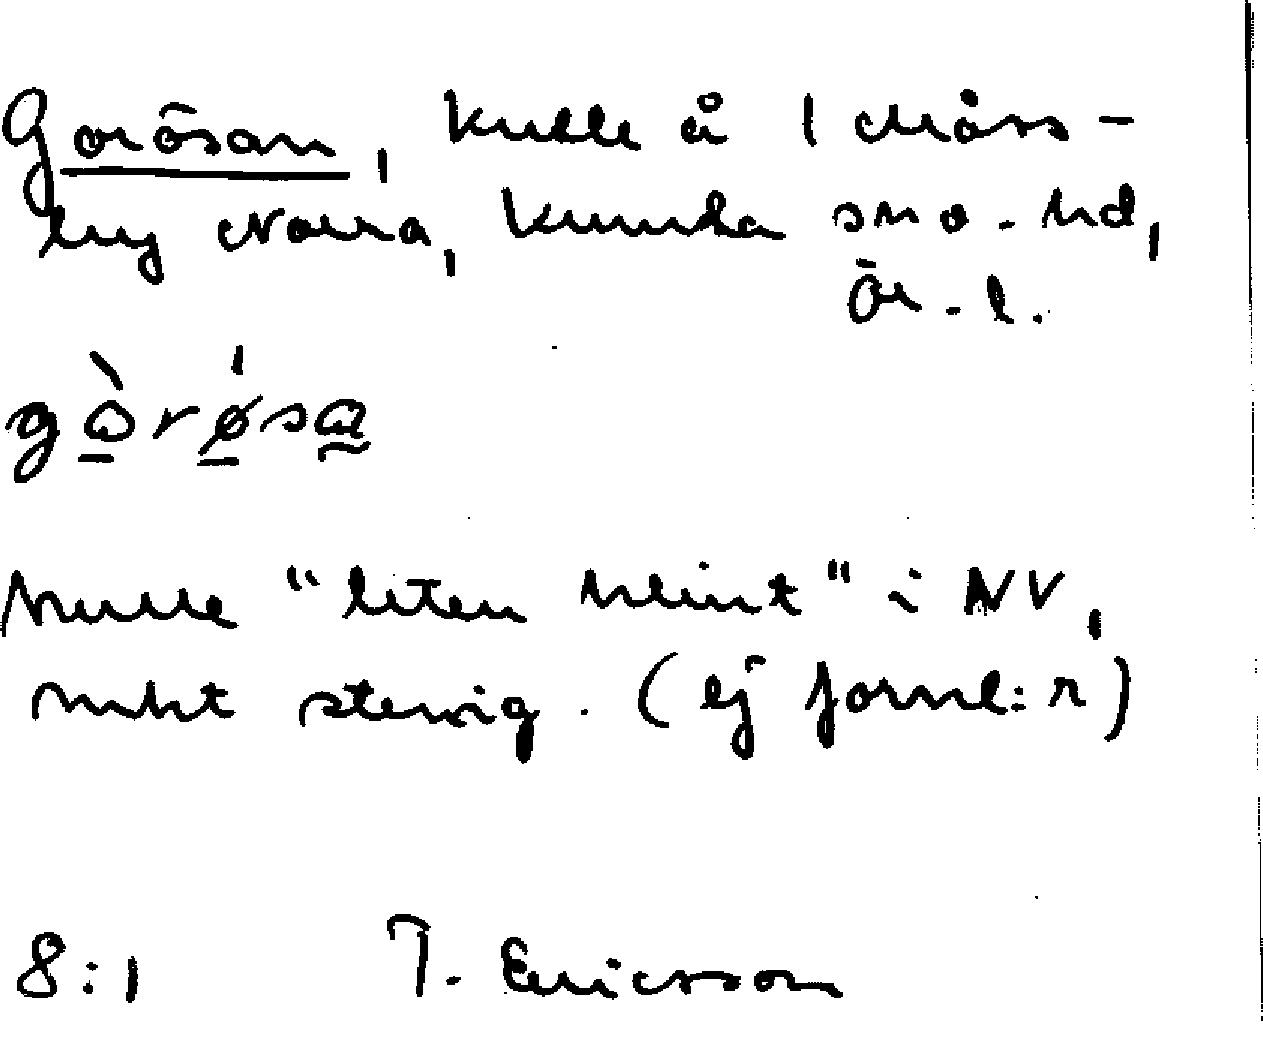 Gorösan, kulle å 1 Moss-
lug Norra, Kumla sn o. hd,
Ör. l.
gòrǿsa
kulle "liten klint" i NV,
mkt stenig. (ej fornl:r)
8:1 T. Ericsson